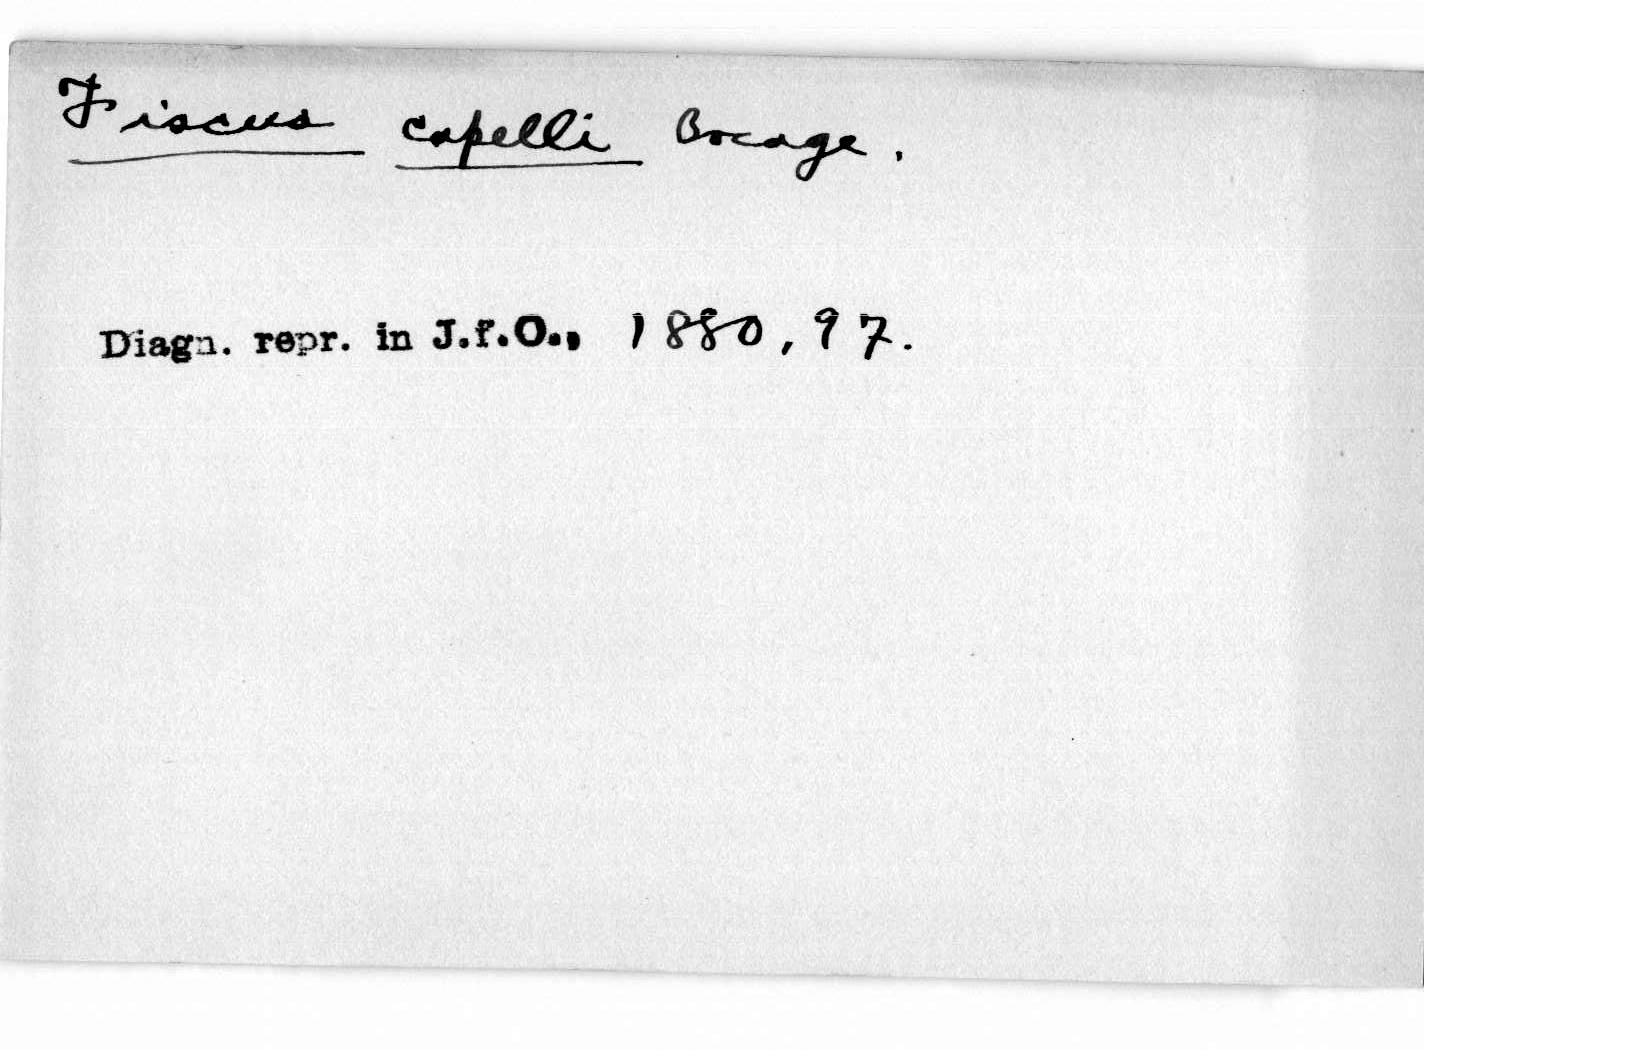 Fiscus capelli Bocage.
Diagn. repr. in J.f.O., 1880, 97.